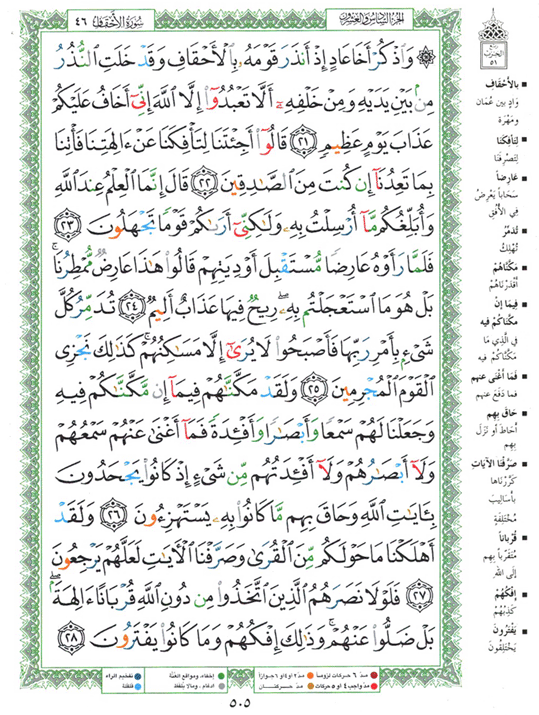 الجزء السادس والعشرون
سورة الأحقاف ٤٦
ربع
الحزب
٥١
۞ وَٱذْكُرْ أَخَا عَادٍ إِذْ أَنذَرَ قَوْمَهُۥ بِٱلْأَحْقَافِ وَقَدْ خَلَتِ ٱلنُّذُرُ
مِنۢ بَيْنِ يَدَيْهِ وَمِنْ خَلْفِهِۦٓ أَلَّا تَعْبُدُوٓا۟ إِلَّا ٱللَّهَ إِنِّىٓ أَخَافُ عَلَيْكُمْ
عَذَابَ يَوْمٍ عَظِيمٍ ﴿٢١﴾ قَالُوٓا۟ أَجِئْتَنَا لِتَأْفِكَنَا عَنْ ءَالِهَتِنَا فَأْتِنَا
بِمَا تَعِدُنَآ إِن كُنتَ مِنَ ٱلصَّـٰدِقِينَ ﴿٢٢﴾ قَالَ إِنَّمَا ٱلْعِلْمُ عِندَ ٱللَّهِ
وَأُبَلِّغُكُم مَّآ أُرْسِلْتُ بِهِۦ وَلَـٰكِنِّىٓ أَرَىٰكُمْ قَوْمًا تَجْهَلُونَ ﴿٢٣﴾
فَلَمَّا رَأَوْهُ عَارِضًا مُّسْتَقْبِلَ أَوْدِيَتِهِمْ قَالُوا۟ هَـٰذَا عَارِضٌ مُّمْطِرُنَا ۚ
بَلْ هُوَ مَا ٱسْتَعْجَلْتُم بِهِۦ ۖ رِيحٌ فِيهَا عَذَابٌ أَلِيمٌ ﴿٢٤﴾ تُدَمِّرُ كُلَّ
شَىْءٍۭ بِأَمْرِ رَبِّهَا فَأَصْبَحُوا۟ لَا يُرَىٰٓ إِلَّا مَسَـٰكِنُهُمْ ۚ كَذَٰلِكَ نَجْزِى
ٱلْقَوْمَ ٱلْمُجْرِمِينَ ﴿٢٥﴾ وَلَقَدْ مَكَّنَّـٰهُمْ فِيمَآ إِن مَّكَّنَّـٰكُمْ فِيهِ
وَجَعَلْنَا لَهُمْ سَمْعًا وَأَبْصَـٰرًا وَأَفْـِٔدَةً فَمَآ أَغْنَىٰ عَنْهُمْ سَمْعُهُمْ
وَلَآ أَبْصَـٰرُهُمْ وَلَآ أَفْـِٔدَتُهُم مِّن شَىْءٍ إِذْ كَانُوا۟ يَجْحَدُونَ
بِـَٔايَـٰتِ ٱللَّهِ وَحَاقَ بِهِم مَّا كَانُوا۟ بِهِۦ يَسْتَهْزِءُونَ ﴿٢٦﴾ وَلَقَدْ
أَهْلَكْنَا مَا حَوْلَكُم مِّنَ ٱلْقُرَىٰ وَصَرَّفْنَا ٱلْـَٔايَـٰتِ لَعَلَّهُمْ يَرْجِعُونَ
﴿٢٧﴾ فَلَوْلَا نَصَرَهُمُ ٱلَّذِينَ ٱتَّخَذُوا۟ مِن دُونِ ٱللَّهِ قُرْبَانًا ءَالِهَةًۢ ۖ
بَلْ ضَلُّوا۟ عَنْهُمْ ۚ وَذَٰلِكَ إِفْكُهُمْ وَمَا كَانُوا۟ يَفْتَرُونَ ﴿٢٨﴾
■ بالأحقاف
وادٍ بين عُمان
ومَهْرَة
■ لتأفكنا
لتصرفنا
■ عارضاً
سحاباً يعرض
في الأفق
■ تدمّر
تُهلك
■ مكّنّاهم
أقدرناهم
■ فيما إن
مكّنّاكم فيه
في الذي ما
مكّنّاكم فيه
■ فما أغنى عنهم
فما دفع عنهم
■ حاق بهم
أحاط أو نزل
بهم
■ صرّفنا الآيات
كرّرناها
بأساليب
مختلفة
■ قرباناً
متقرّباً بهم
إلى الله
■ إفكهم
كذبهم
■ يفترون
يختلقون
مدّ ٦ حركات لزوماً
مدّ ٢ أو ٤ أو ٦ جوازاً
مدّ واجب ٤ أو ٥ حركات
مدّ حركتان
إخفاء، ومواقع الغُنَّة
ادغام، وما لا يُلفظ
تفخيم الراء
قلقلة
٥٠٥